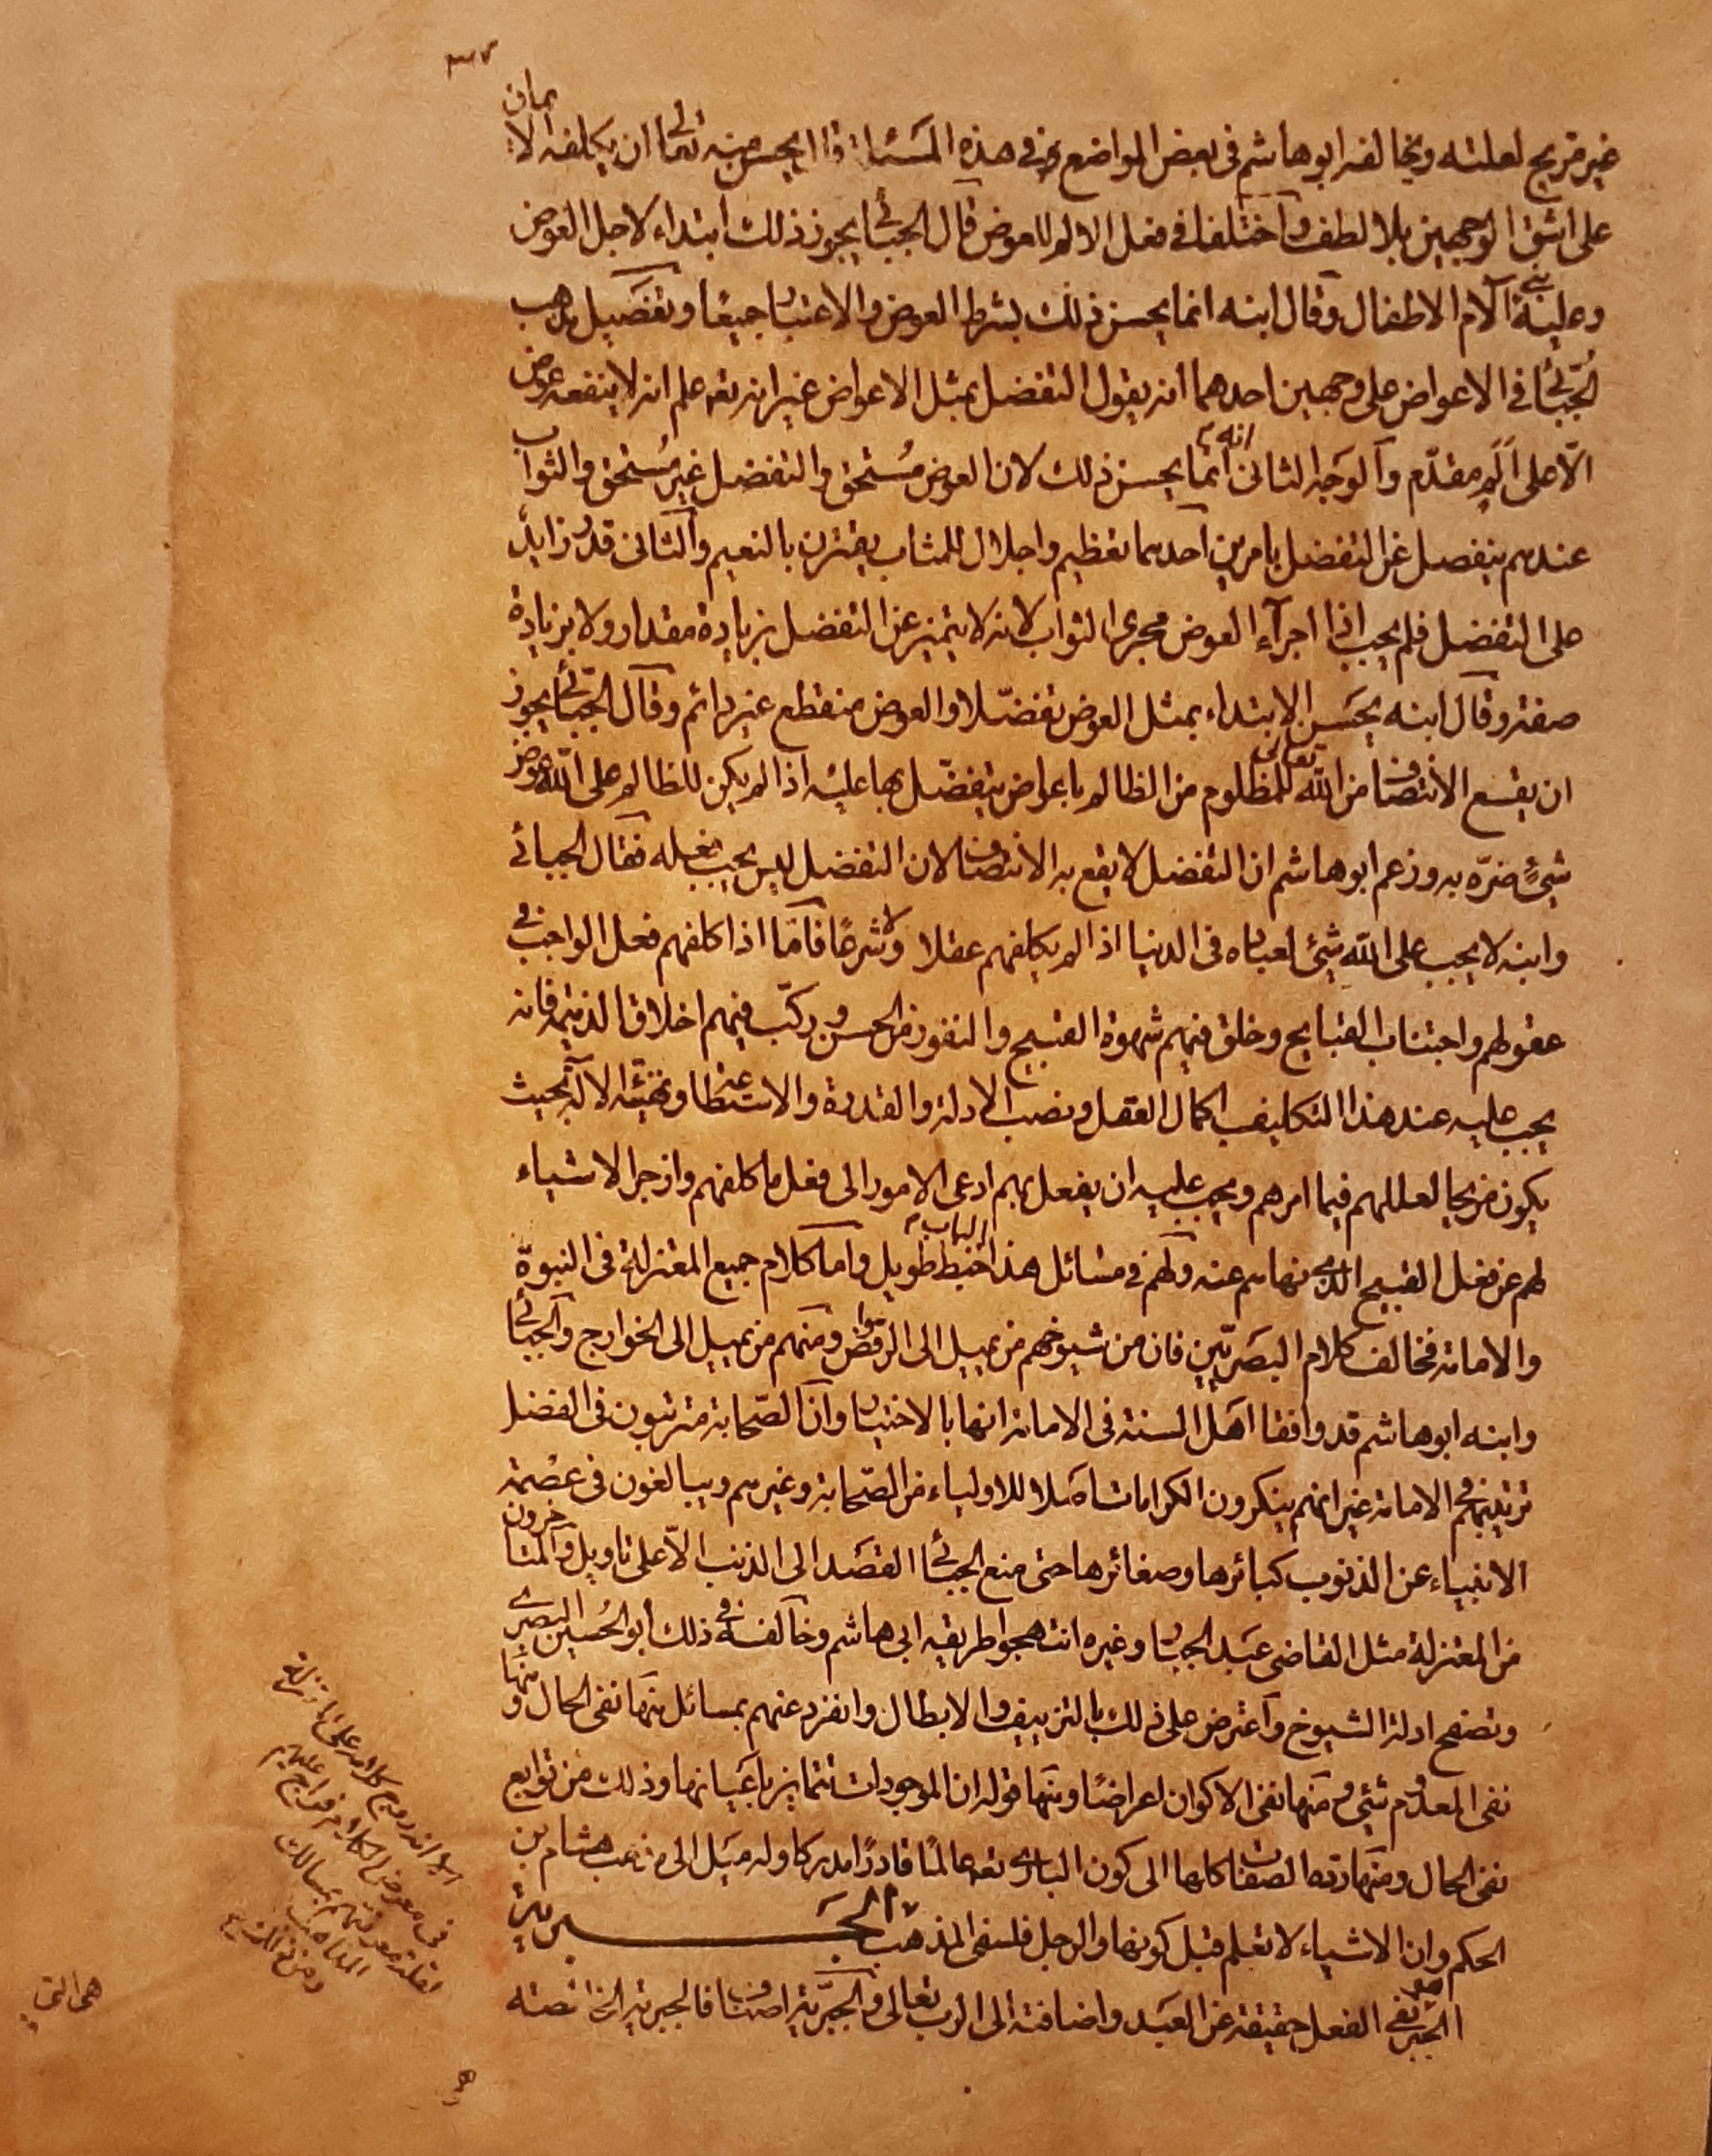 غير مزيح لعلته ويخالفه ابو هاشم فى بعض المواضع فى هذه المسئلة قالا يحسن منه تعالى ان يكلفه الايمان
على اشق الوجهين بلا لطف واختلفا فى فعل الالم للعوض قال الجبائى يجوز ذلك ابتداء لاجل العوض
وعليه بنى آلام الاطفال وقال ابنه انما يحسن ذلك بشرط العوض والاعتبار جميعا وتفصيل مذهب
الجُبّائى فى الاعواض على وجهين احدهما انه يقول التفضل بمثل الاعواض غير انه تعه علم انه لا ينفعه عوض
الّا على اَلَم مقدّم والوجه الثانى انه انما يحسن ذلك لان العوض مُستحق والتفضل غير مُستحق والثواب
عندهم ينفصل عن التفضل بامرين احدهما تعظيم واجلال للمثاب يقترن بالنعيم والثانى قدر زايد
على التفضل فلم يجب اذا اجراء العوض مجرى الثواب لانه لا يتميز عن التفضل بزيادة مقدار ولا بزيادة
صفة وقال ابنه يحسن الابتداء بمثل العوض تفضّلا والعوض منقطع غير دائم وقال الجبّائى يجوز
ان يقع الانتصاف من الله تعالى للمظلوم من الظالم باعواض يتفضّل بها عليه اذا لم يكن للظالم على الله عوض
شىءٍ ضرّه به وزعم ابو هاشم ان التفضل لا يقع به الانتصاف لان التفضل ليس يجب فعله فقال الجبائى
وابنه لا يجب على الله شىء لعباده فى الدنيا اذا لم يكلفهم عقلا ولا شرعًا فامّا اذا كلفهم فعل الواجب فى
عقولهم واجتناب القبايح وخلق فيهم شهوة القبيح والنفور من الحسن وركّب فيهم اخلاق الذميمة فانه
يجب عليه عند هذا التكليف اكمال العقل ونصب الادلة والقدرة والاستطاعة وتهيئة الالة بحيث
يكون مزيحا لعللهم فيما امرهم ويجب عليه ان يفعل بهم ادعى الامور الى فعل ما كلفهم وازجر الاشياء
لهم عن فعل القبيح الذى نهاهم عنه ولهم فى مسائل هذا الباب خبط طويل واما كلام جميع المعتزلة فى النبوّة
والامامة فخالف كلام البصريّين فان من شيوخهم من يميل الى الروافض ومنهم من يميل الى الخوارج والجبائى
وابنه ابو هاشم قد وافقا اهل السنة فى الامامة انها بالاختيار وان الصّحابة مترتبون فى الفضل
ترتيبهم فى الامامة غير انهم ينكرون الكرامات اصلا للاولياء من الصّحابة وغيرهم ويبالغون فى عصمة
الانبياء عن الذنوب كبائرها وصغائرها حتى منع الجبائى القصد الى الذنب الّا على تاويل والمتاخرون
من المعتزلة مثل القاضى عبد الجبار وغيره انتهجوا طريقه ابى هاشم وخالفه فى ذلك أبو الحُسين البصرى
وتصفح ادلة الشيوخ واعترض على ذلك بالتزييف والابطال وانفرد عنهم بمسائل منها نفى الحال ومنها
نفى المعدوم شئى ومنها نفى الاكوان اعراضًا ومنها قوله ان الموجودات تتمايز باعيانها وذلك من توابع
نفى الحال ومنها رده الصفات كلها الى كون البارى تعه عالمًا قادرًا مدركا وله ميل الى مذهب هشام بن
الحكم وان الاشياء لا تعلم قبل كونها والرجل فلسفى المذهب الجبرية
الجبر هو نفى الفعل حقيقة عن العبد واضافته الى الرب تعالى والجبّرية اصناف فالجبرية الخالصة
هى التى